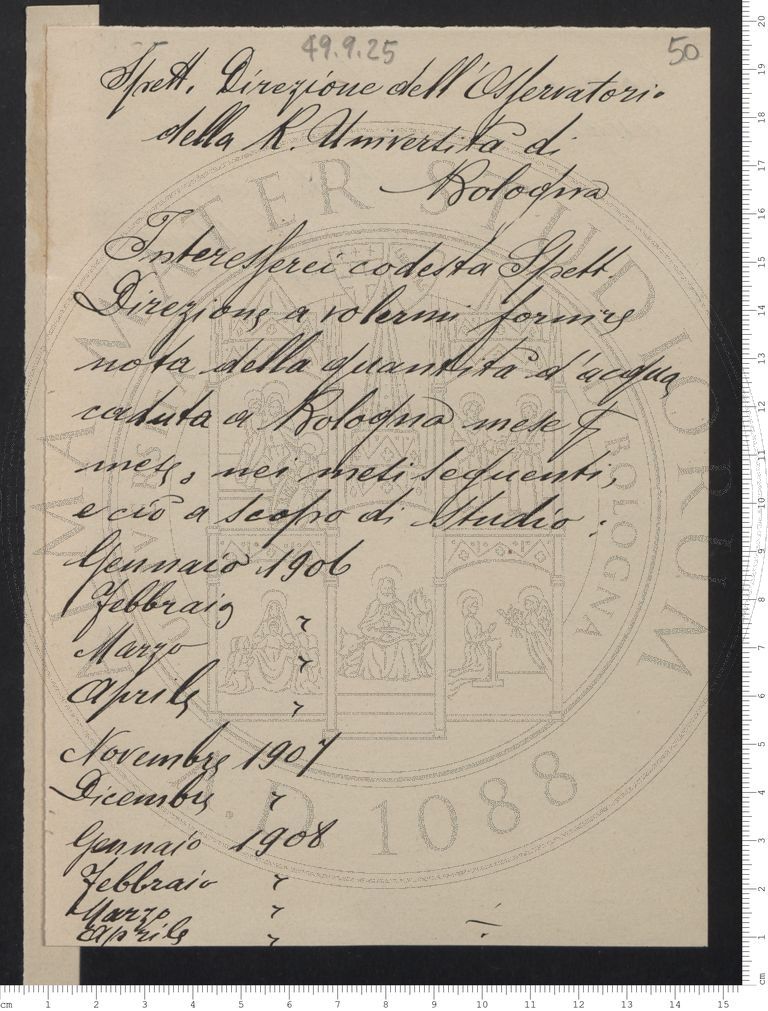 49.9.25
50
Spett. Direzione dell'Osservatorio
della R. Università di
Bologna
Interesserei codesta Spett.
Direzione a volermi fornire
nota della quantità d'acqua
caduta a Bologna mese
mese, nei mesi seguenti,
e ciò a scopo di studio:
Gennaio 1906
Febbraio "
Marzo "
Aprile "
Novembre 1907
Dicembre "
Gennaio 1908
Febbraio "
Marzo "
Aprile "
ALMA MATER STUDIORUM
A.D. 1088
BOLOGNA